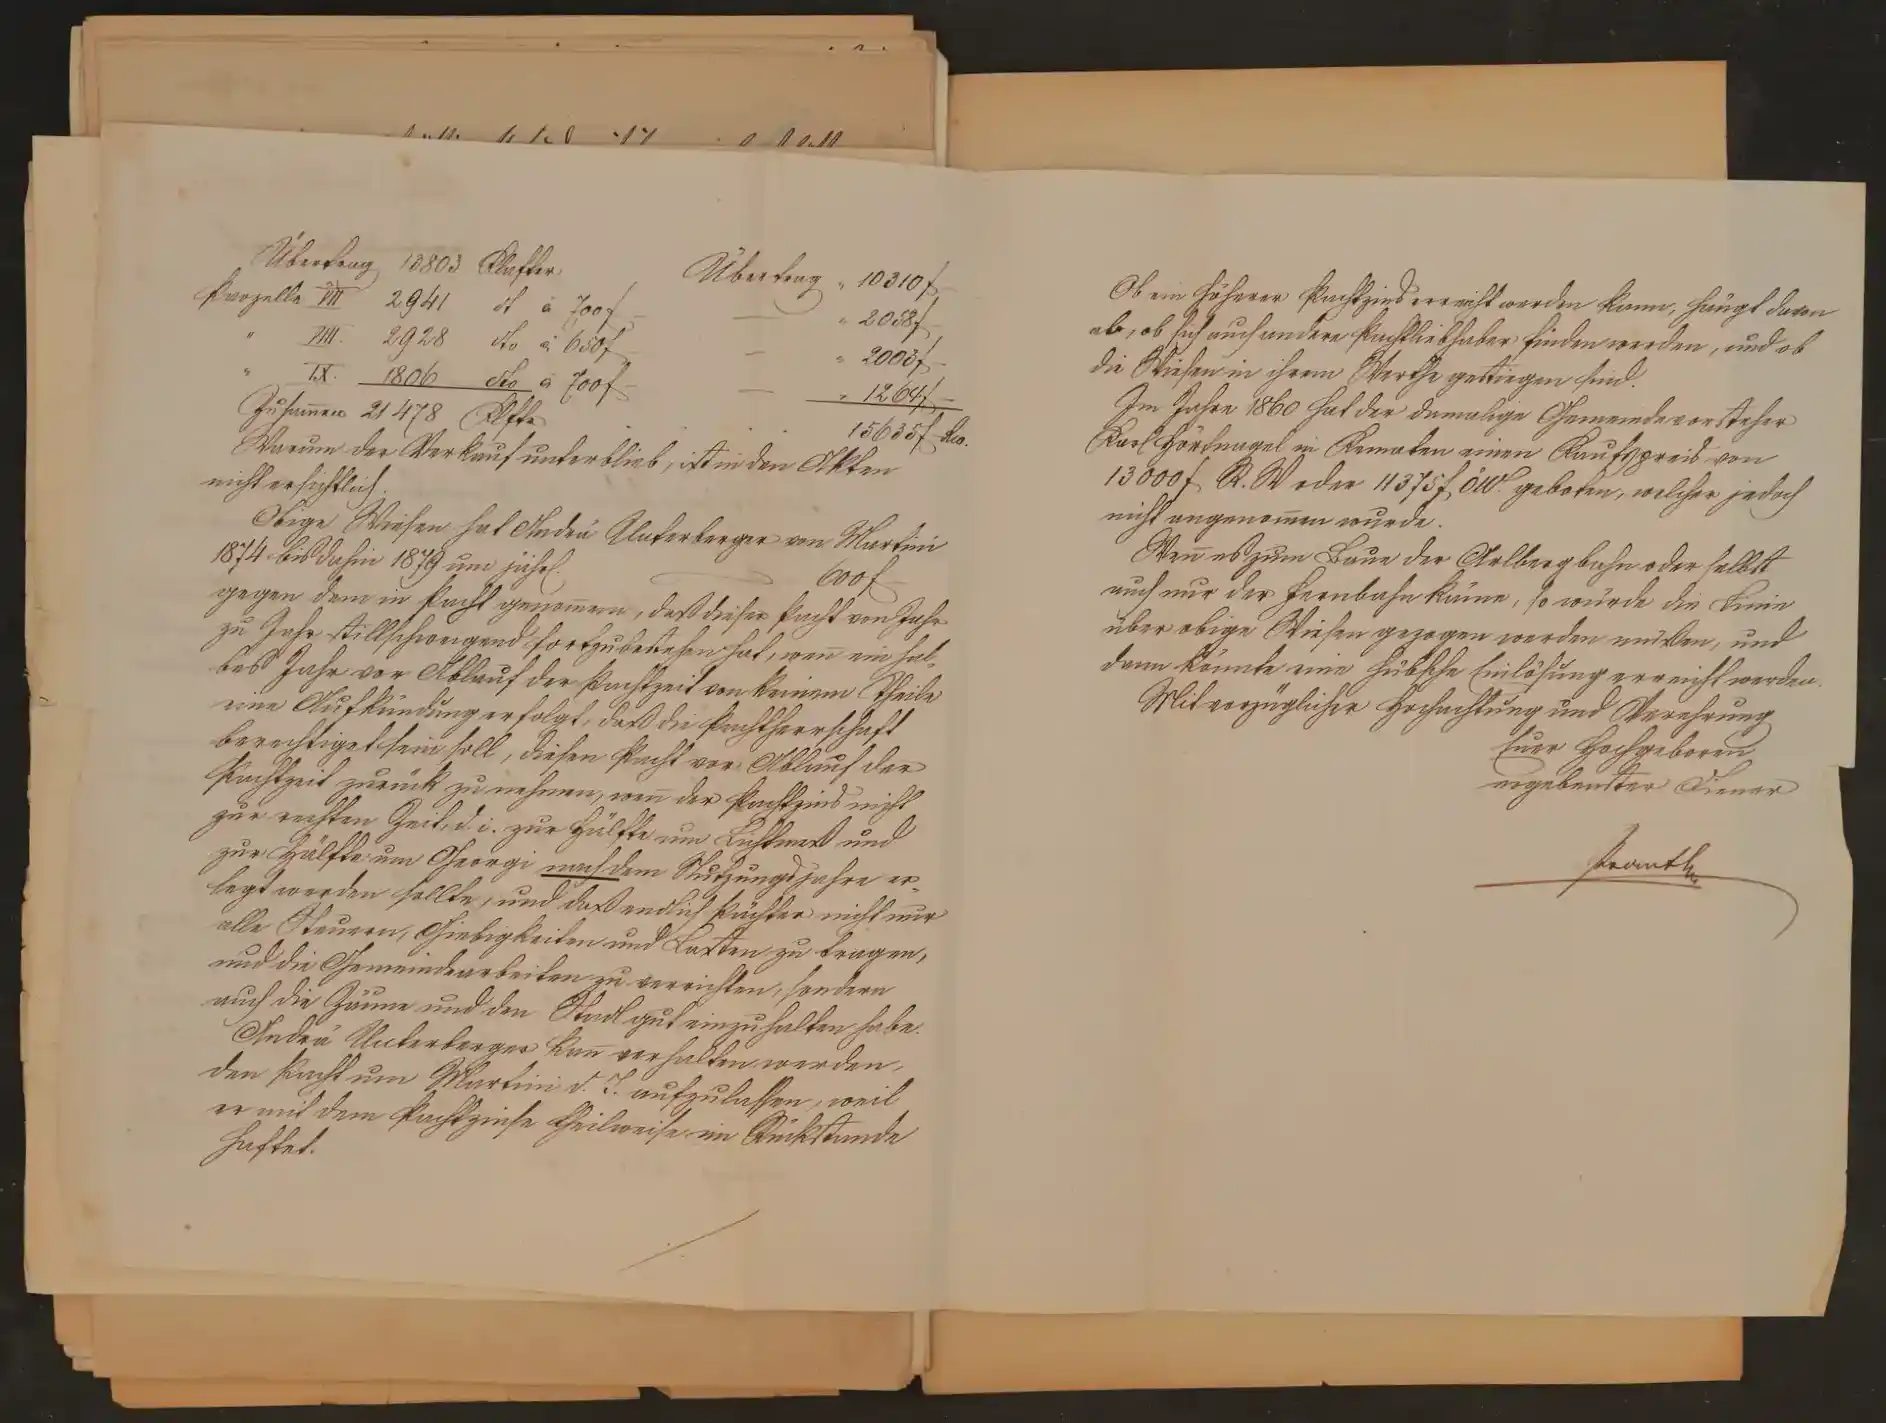 Übertrag 13803 Klafter Übertrag „ 10310 f –
Parzelle VII 2941 dt à 700 f – — „ 2058 f –
„ VIII. 2928 dto à 650 f – — „ 2003 f –
„ IX. 1806 dto à 700 f – — „ 1264 f –
Zusam̄en 21478 Klftr . . . 15635 f
Warum der Verkauf unterblieb, ist in den Akten
nicht ersichtlich.
Obige Wiesen hat Andrä Unterberger von Martini
1874 bis dahin 1879 um jährl. — 600 f –
gegen dem in Pacht genom̄en, daß dieser Pacht von Jahr
zu Jahr stillschweigend fortzubestehen hat, wen̄ ein hal-
bes Jahr vor Ablauf der Pachtzeit von keinem Theile
eine Aufkündung erfolgt, daß die Pachtherrschaft
berechtiget sein soll, diesen Pacht vor Ablauf der
Pachtzeit zurück zu nehmen, wen̄ der Pachtzins nicht
zur rechten Zeit, d. i. zur Hälfte um Lichtmeß und
zur Hälfte um Georgi nach dem Nutzungsjahre er-
legt werden sollte, und daß endlich Pächter nicht nur
alle Steuern, Giebigkeiten und Lasten zu tragen,
und die Gemeindearbeiten zu verrichten, sondern
auch die Zäune und den Stadl gut einzuhalten habe.
Andrä Unterberger kan̄ verhalten werden,
den Pacht um Martini d. J. aufzulassen, weil
er mit dem Pachtzinse theilweise im Rückstande
haftet.
Ob ein höherer Pachtzins erreicht werden kann, hängt davon
ab, ob sich auch andere Pachtliebhaber finden werden, und ob
die Wiesen in ihrem Werthe gestiegen sind.
Im Jahre 1860 hat der damalige Gemeindevorsteher
Karl Hörtnagel in Kematen einen Kaufspreis von
13000 f R. W oder 11375 f öW. geboten, welcher jedoch
nicht angenom̄en wurde.
Wen̄ es zum Baue der Arlbergbahn oder selbst
auch nur der Fernbahn käme, so würde die Linie
über obige Wiesen gezogen werden müssen, und
dann könnte eine hübsche Einlösung erreicht werden.
Mit vorzüglicher Hochachtung und Verehrung
Euer Hochgeboren
ergebenster Diener